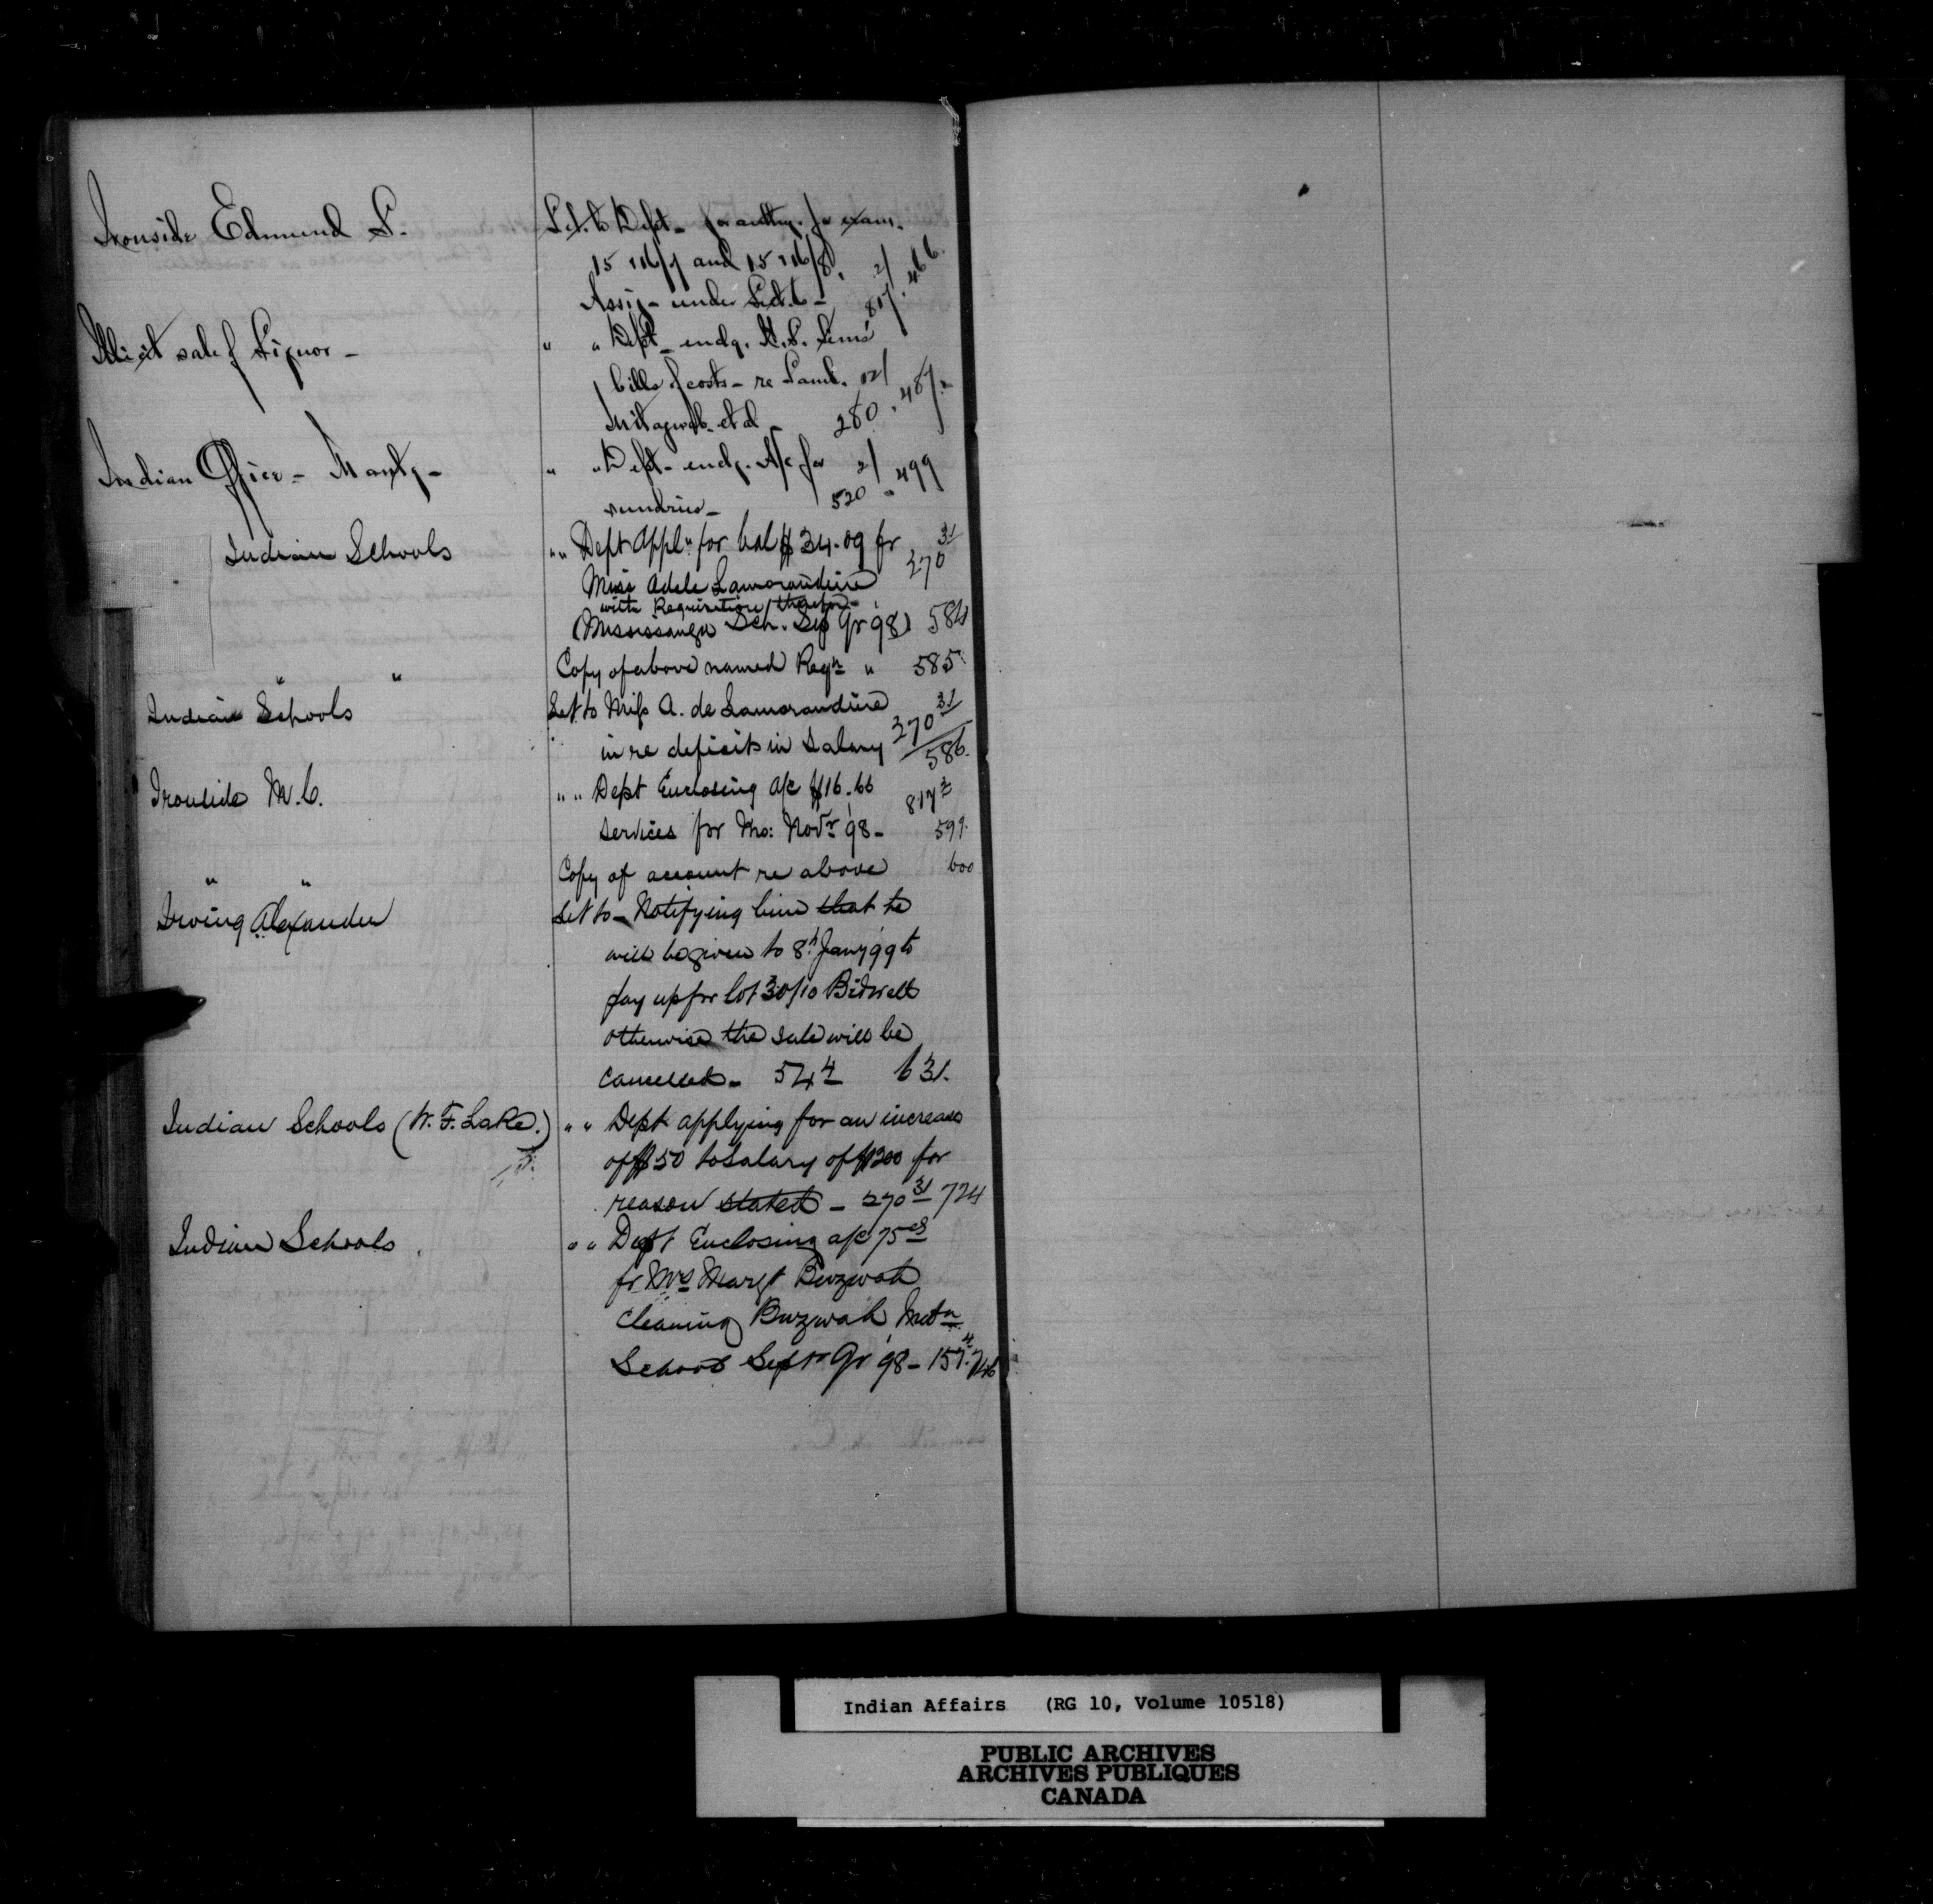 Ironside Edmund S. Let. to Dept – for authy. for exam.
15 & 16/7 and 15 & 16/8. 2/
Assig – under Let. to – 817. 466.
Illicit sale of Liquor – " " Dept – encdg.
bills of costs – re Lamb. 02/
et al – 280. 487.
Indian Office – Many – " " Dept – encdg. A/c for 2/
sundries – 520 – 499
Indian Schools " " Dept Appln for bal $34.09 fr 31
Miss Adele Lamorandiere 270
with Requisition therefor –
(Mississauga Sch. Sep Qr 98) 584
" " Copy of above named Reqn " 585
Indian Schools Let to Miss A. de Lamorandiere 31
in re deficit in Salary 270
586.
Ironside M. C. " " Dept Enclosing a/c $16.66 817 2
Services for Mo: Novr 98 – 599.
" " Copy of account re above 600
Irving Alexander Let to – Notifying him that he
will be given to 8th Jany 99 to
pay up for lot 30/10 Bidwell
otherwise the sale will be
cancelled – 54 4 631.
Indian Schools (W. F. Lake.) " " Dept applying for an increase
of $50 to Salary of $300 for
reason stated – 270 31 724
Indian Schools. " " Dept Enclosing a/c 75cs
fr Mrs Margt Buzwah
Cleaning Buzwah
School Septr Qr 98 – 157. 4
Indian Affairs (RG 10, Volume 10518)
PUBLIC ARCHIVES
ARCHIVES PUBLIQUES
CANADA